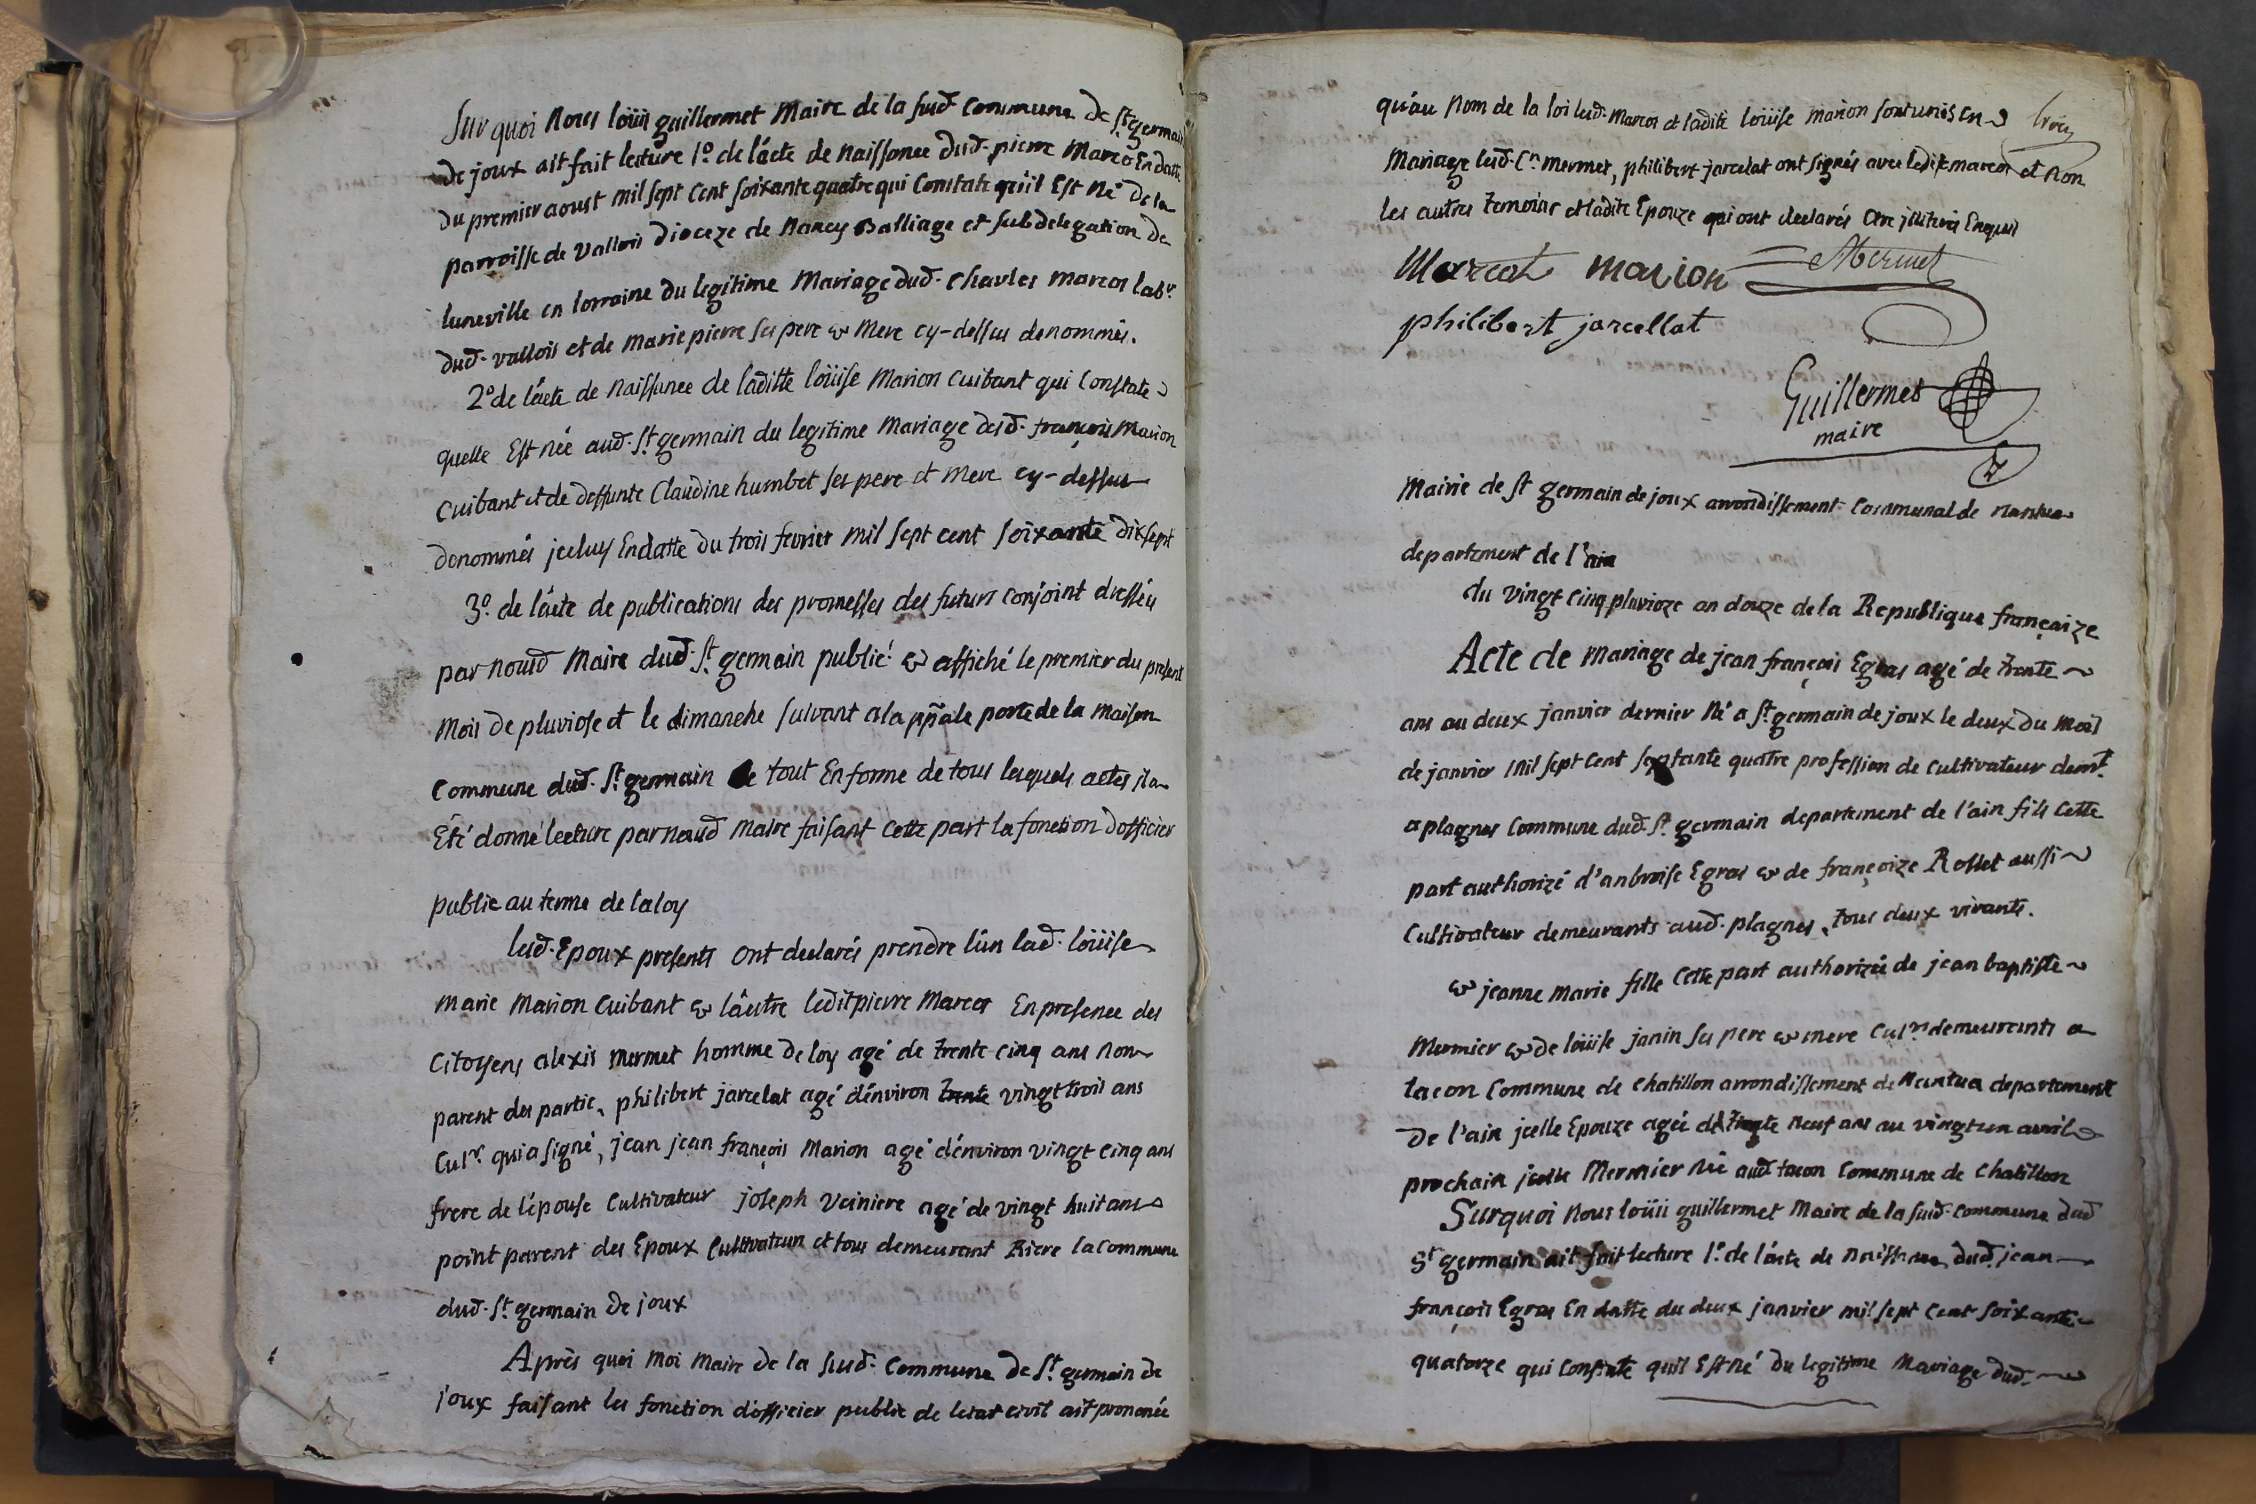 Sur quoi Nous loüis guillermet Maire de la sud. Commune de St. germain
de joux ait fait lecture 1o. de l'acte de Naissance dud. pierre Marcos En datte
du premier aoust mil sept cent soixante quatre qui Constate qu'il Est Né de la
parroisse de vallois Dioceze de Nancy Balliage et subdelegation de
luneville en lorraine du legitime Mariage dud. charles marcos labr.
dud. vallois et de marie pierre ses pere & Mere cy-dessus denommés.
2o de l'acte de Naissance de laditte loüise Marion Cuibant qui Constate
quelle Est née aud. St. germain du legitime Mariage desd. françois Marion
Cuibant et de deffunte Claudine humbet ses pere et Mere cy-dessus
denommés jceluy En datte du trois fevrier mil sept cent soixante dix sept
3o. de l'acte de publications des promesses des futurs conjoint dressées
par nousd Maire dud. St. germain publié & affiché le premier du present
mois de pluviose et le dimanche suivant a la ppale porte de la maison
Commune dud. St. germain Le tout En forme de tous lesquels actes jl a
Eté donné lecture par nousd maire faisant cette part la fonction dofficier
public au terme de la loy
lesd. Epoux presents ont declarés prendre l'un lad. loüise
marie Marion Cuibant & lâutre ledit pierre Marcos En presence des
Citoyens alexis mermet homme de loy agé de trente cinq ans non
parent des partie, philibert jarcelat agé dénviron trente vingt trois ans
Culr. qui a signé, jean jean françois Marion agé dénviron vingt cinq ans
frere de l'épouse Cultivateur joseph Veiniere agé de vingt huit ans
point parent des Epoux Cultivateur et tous demeurant Riere la commune
dud. St. germain de joux
Après quoi Moi Maire de la sud. Commune de St. germain de
joux faisant les fonction dofficier public de letat civil ait prononcé
qu'au Nom de la loi lesd. Marcos et ladite loüise marion sont unis en
Mariage lesd. Cn. mermet, philibert jarcelat ont signés avec ledit marcos et Non
les autres temoins et ladite Epouze qui ont declarés être jlliterés Enquis
Marcot marion Mermet
philibert jarcellat
Guillermet
maire
Mairie de St germain de joux arrondissement Communal de nantua
departement de l'ain
du vingt cinq pluvioze an douze de la Republique françaize
Acte de mariage de jean françois Egras agé de trente
ans au deux janvier dernier Né a St. germain de joux le deux du mois
de janvier mil sept cent septante quatre profession de cultivateur demt.
a plagnes commune dud. St. germain departement de l'ain fils cette
part authorizé d'anbroise Egras & de françoize Rosset aussi
Cultivateur demeurants aud. plagnes, tous deux vivants.
& jeanne marie fille cette part authorizée de jean baptiste
Mermier & de loüise janin ses pere & mere culrs demeurants a
tacon Commune de chatillon arrondissement de Nantua departement
De l'ain jcelle Epouze agée de trente neuf ans au vingt un avril
prochain jcelle Mermier Née aud. tacon Commune de Chatillon
Surquoi Nous loüis guillermet Maire de la sud. Commune dud
St germain ait fait lecture 1o. de l'acte de Naissance dud. jean
françois Egras En datte du deux janvier mil sept cent soixante
quatorze qui Constate quil Est Né du legitime Mariage dud.